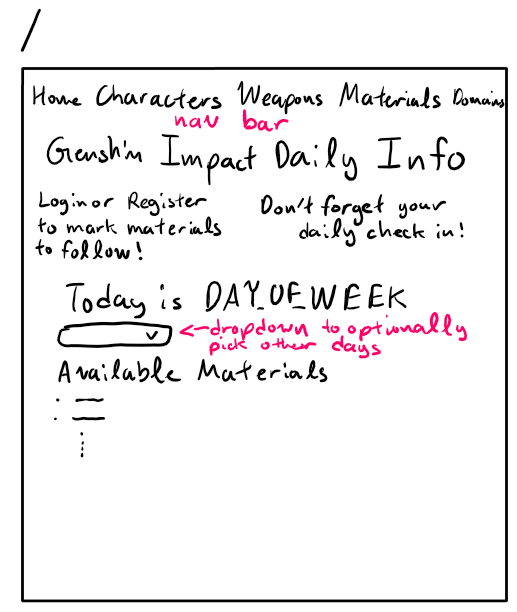 /
Home Characters Weapons Materials Domains
nav bar
Genshin Impact Daily Info
Login or Register
to mark materials
to follow!
Don't forget your
daily check in!
Today is DAY_OF_WEEK
<-dropdown to optionally
pick other days
Available Materials